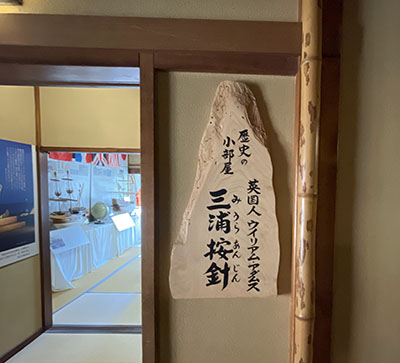 歴史の
小部屋
英国人 ウイリアム・アダムス
三浦按針
みうらあんじん